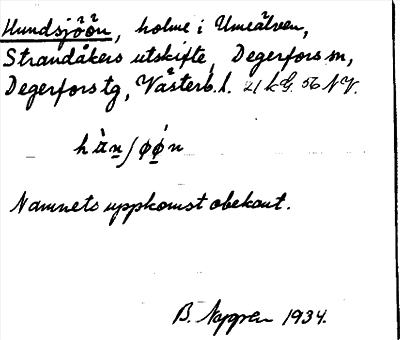 Hundsjöön, holme i Umeälven,
Strandåkers utskifte, Degerfors sn,
Degerfors tg, Västerb. l. 21 k G. 56 NV.
Namnets uppkomst obekant.
B. Nygren 1934.